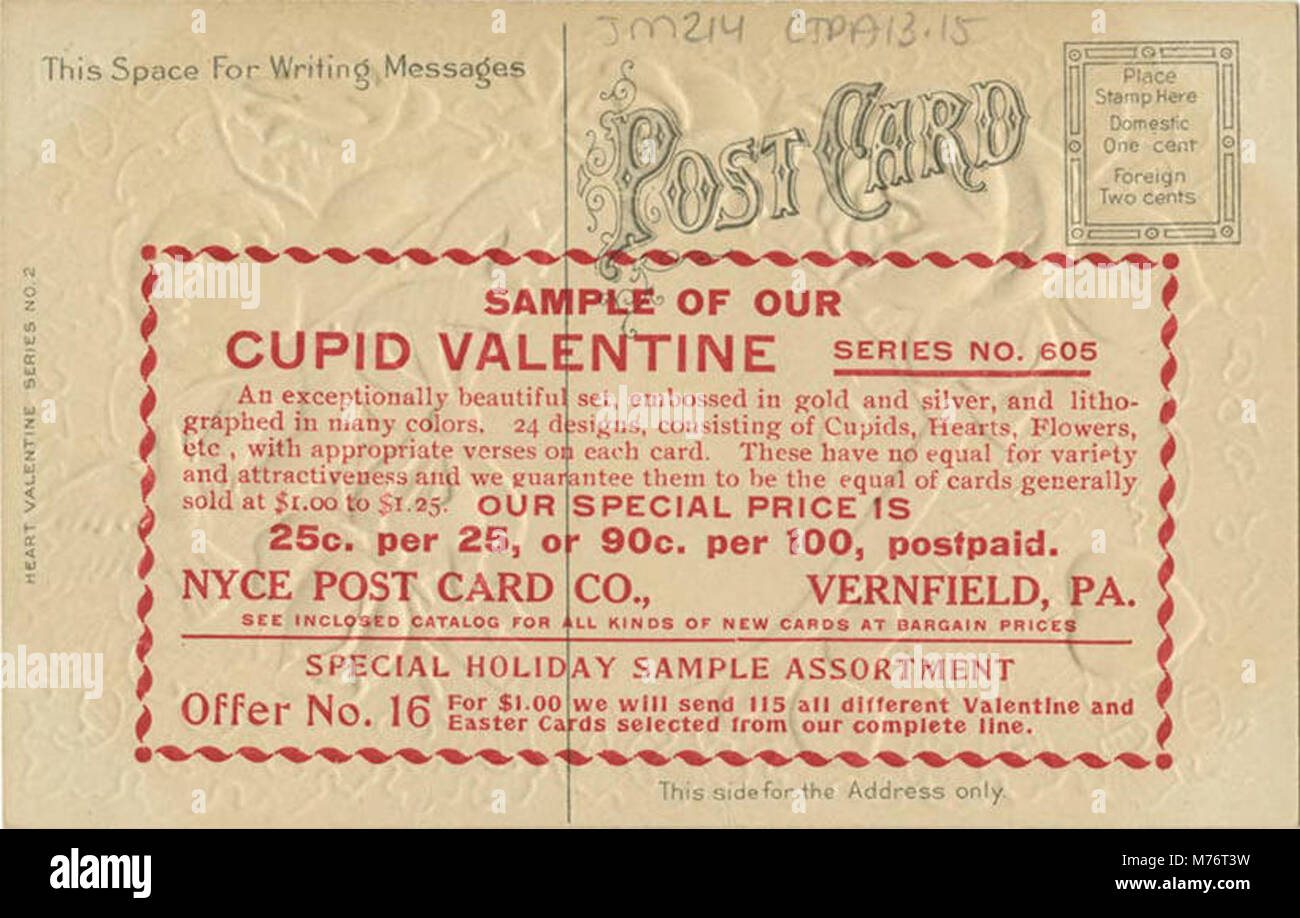 JM214 CTPA13.15
This Space For Writing Messages
POST CARD
Place
Stamp Here
Domestic
One cent
Foreign
Two cents
HEART VALENTINE SERIES NO. 2
SAMPLE OF OUR
CUPID VALENTINE SERIES NO. 605
An exceptionally beautiful set, embossed in gold and silver, and litho-
graphed in many colors. 24 designs, consisting of Cupids, Hearts, Flowers,
etc , with appropriate verses on each card. These have no equal for variety
and attractiveness and we guarantee them to be the equal of cards generally
sold at $1.00 to $1.25. OUR SPECIAL PRICE IS
25c. per 25, or 90c. per 100, postpaid.
NYCE POST CARD CO., VERNFIELD, PA.
SEE INCLOSED CATALOG FOR ALL KINDS OF NEW CARDS AT BARGAIN PRICES
SPECIAL HOLIDAY SAMPLE ASSORTMENT
Offer No. 16 For $1.00 we will send 115 all different Valentine and
Easter Cards selected from our complete line.
This side for the Address only.
a
alamy
alamy
Image ID: M76T3W
www.alamy.com